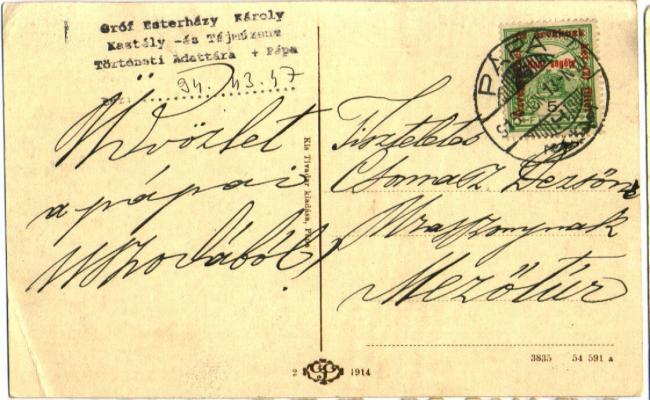 Gróf Esterházy Károly
Kastély -és Tájmúzeum
Történeti Adattára + Pápa
94. 43. 47
Üdvözlet
a pápai
uszodából!
Kis Tivadar kiadása, Pápa
PÁPA
5
Tiszteletes
Csomasz Dezsőné
Úrasszonynak
Mezőtúr
3835 54 591 a
2 1914